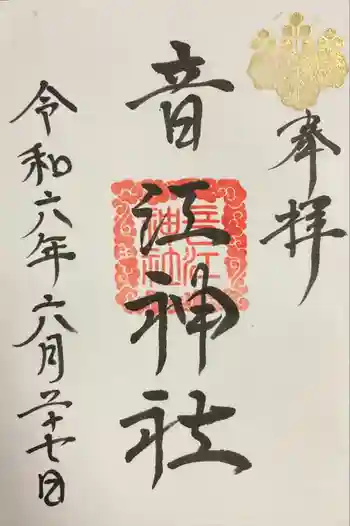 奉拝
音江神社
音江神社
令和六年六月二十七日